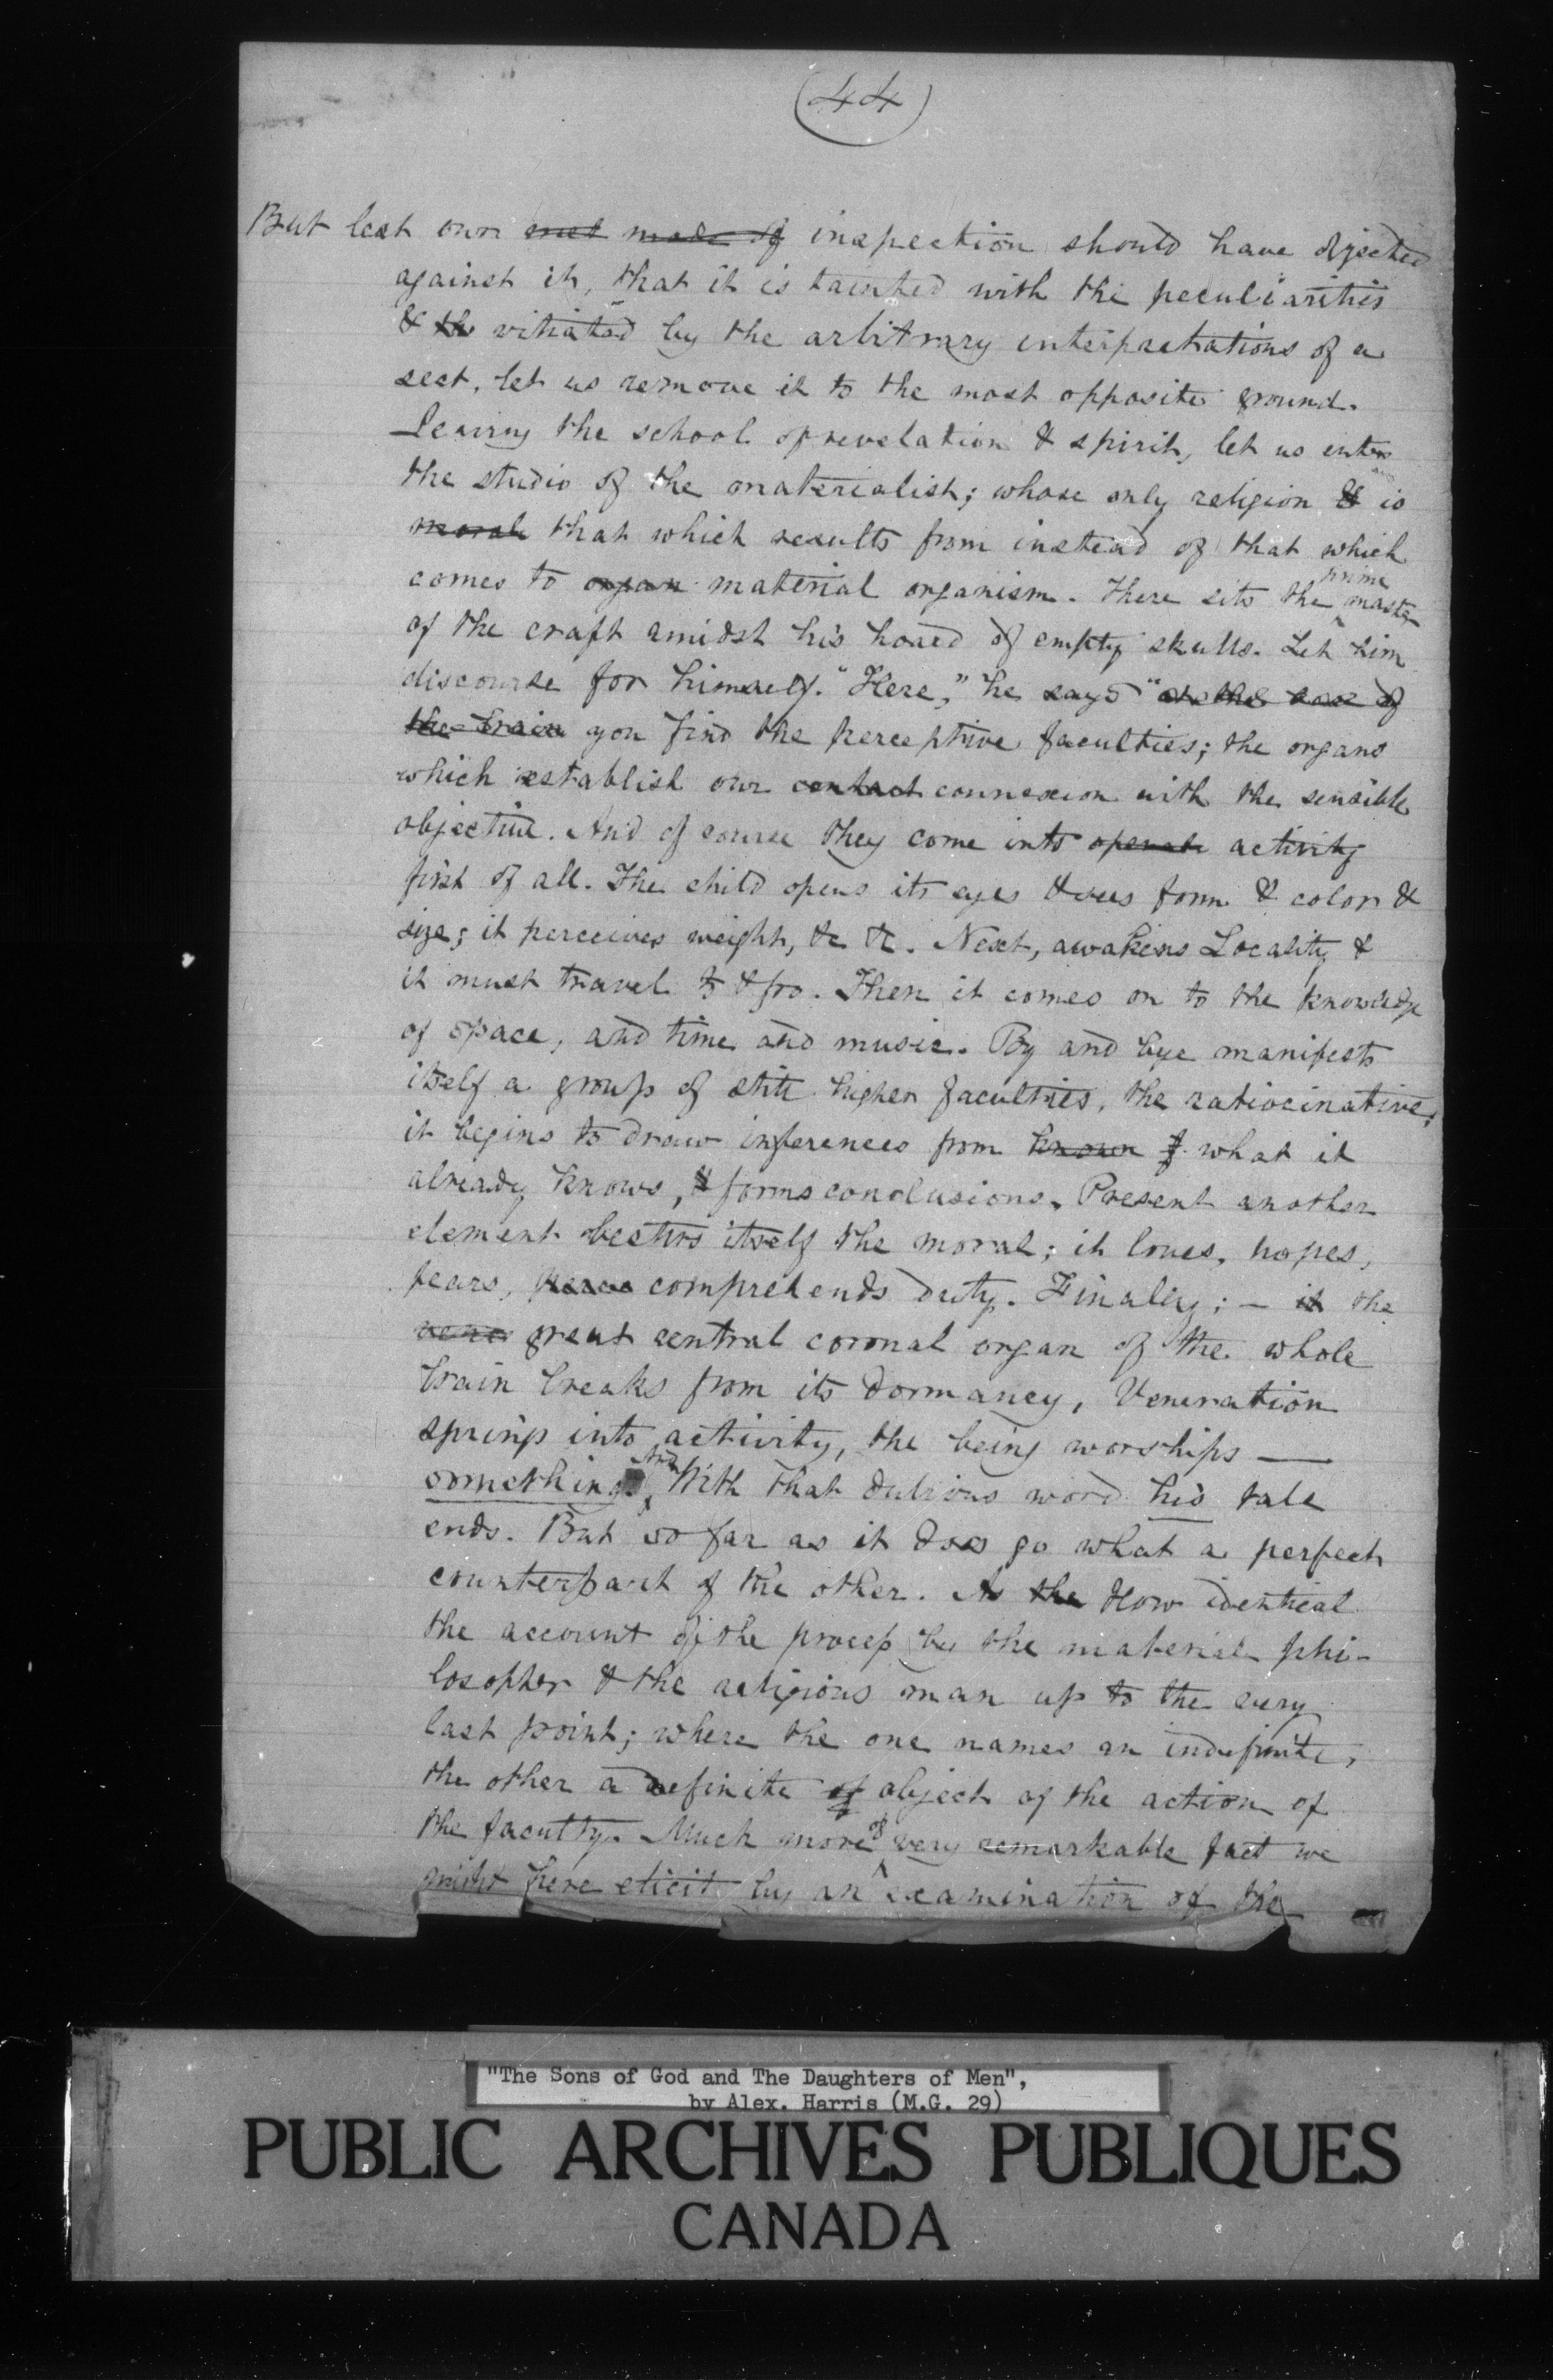 (44)
But lest our met mode of inspection should have objected
against it, that it is tainted with the peculiarities
& the vitiated by the arbitrary interpretations of a
sect, let us remove it to the most opposite ground.
Leaving the school of revelation & spirit, let us enter
the studio of the materialist; whose only religion is
morale that which results from instead of that which
comes to organ material organism. There sits the prime master
of the craft amidst his hoard of empty skulls. Let him
discourse for himself. "Here," he says "at the base of
the brain you find the perceptive faculties; the organs
which establish our contact connexion with the sensible
objective. And of course they come into operati activity
first of all. The child opens its eyes & sees form & color &
size; it perceives weight, &c &c. Next, awakens Locality &
it must travel to & fro. Then it comes on to the knowledge
of space, and time and music. By and bye manifests
itself a group of still higher faculties, the ratiocinative;
it begins to draw inferences from known f what it
already knows, & forms conclusions. Present another
element bestirs itself the moral; it loves, hopes,
fears, comprehends duty. Finally; — it the
great central coronal organ of the whole
brain breaks from its dormancy, Veneration
springs into activity, the being worships —
something. And With that dubious word his tale
ends. But so far as it does go what a perfect
counterpart of the other. As the How identical
the account of the process by the material phi-
losopher & the religious man up to the very
last point; where the one names an indefinite,
the other a definite of object of the action of
the faculty. Much more of very remarkable fact we
might here elicit by an examination of the
"The Sons of God and The Daughters of Men",
by Alex. Harris (M.G. 29)
PUBLIC ARCHIVES PUBLIQUES
CANADA